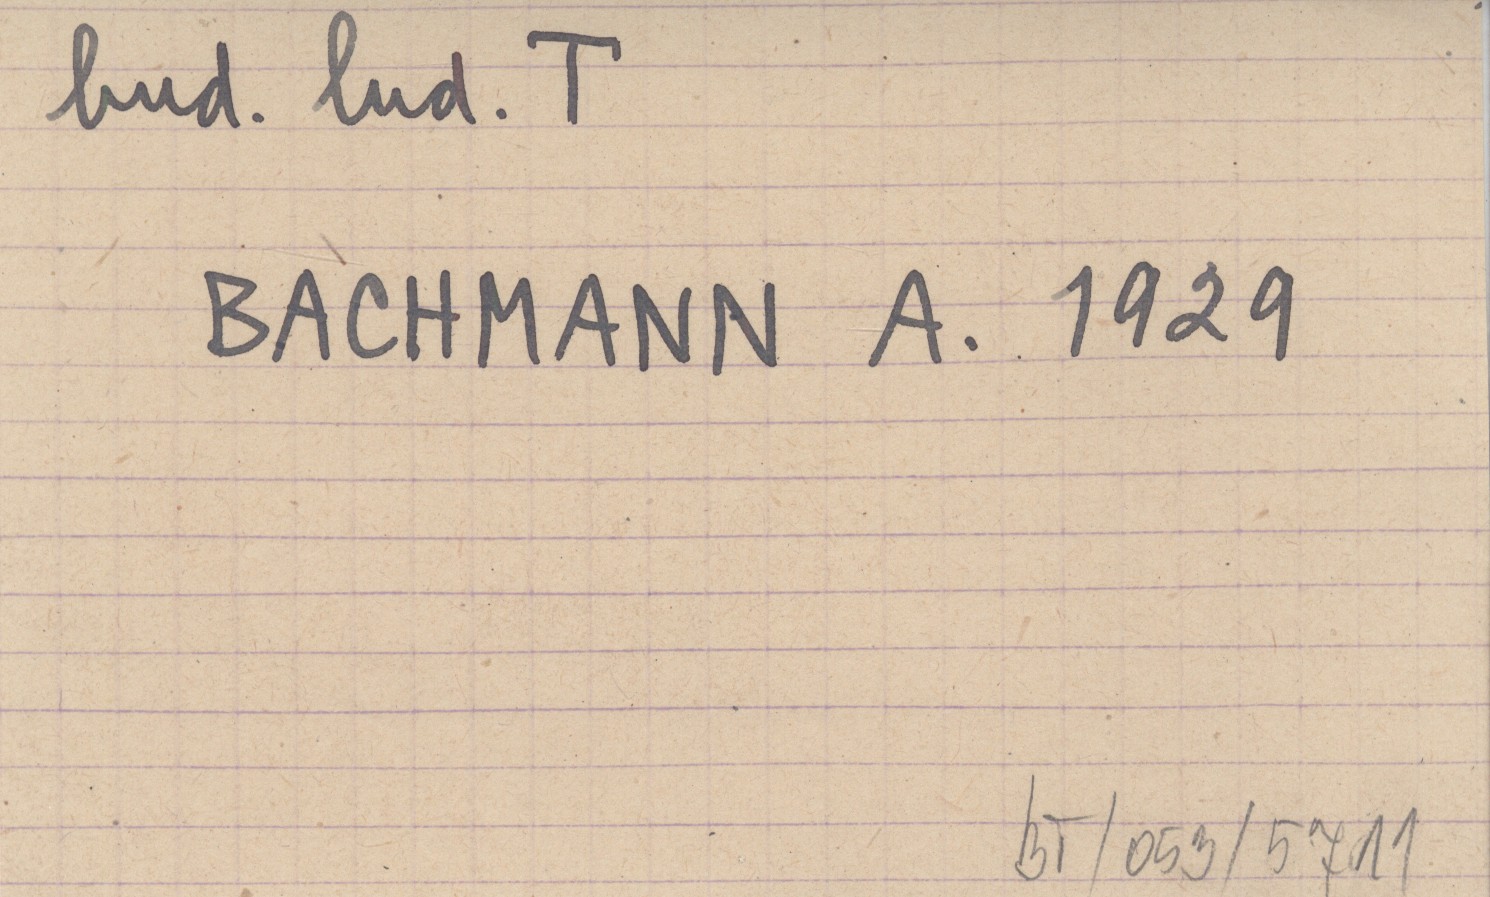 bud. lud. T
BACHMANN A. 1929
BT/053/5711